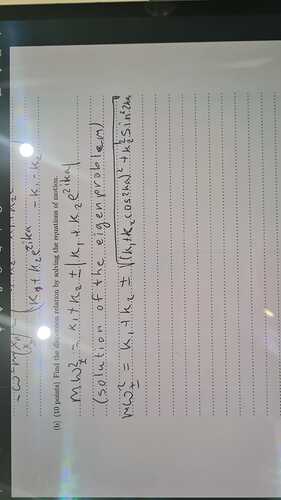 K₁ + K₂ e^{2ika} - K₁ - K₂
(b) (10 points) Find the dispersion relation by solving the equations of motion.
mω²± = K₁ + K₂ ± |K₁ + K₂ e^{2ika}|
(solution of the eigenproblem)
mω²± = K₁ + K₂ ± √((K₁ + K₂ cos 2ka)² + K₂² sin² 2ka